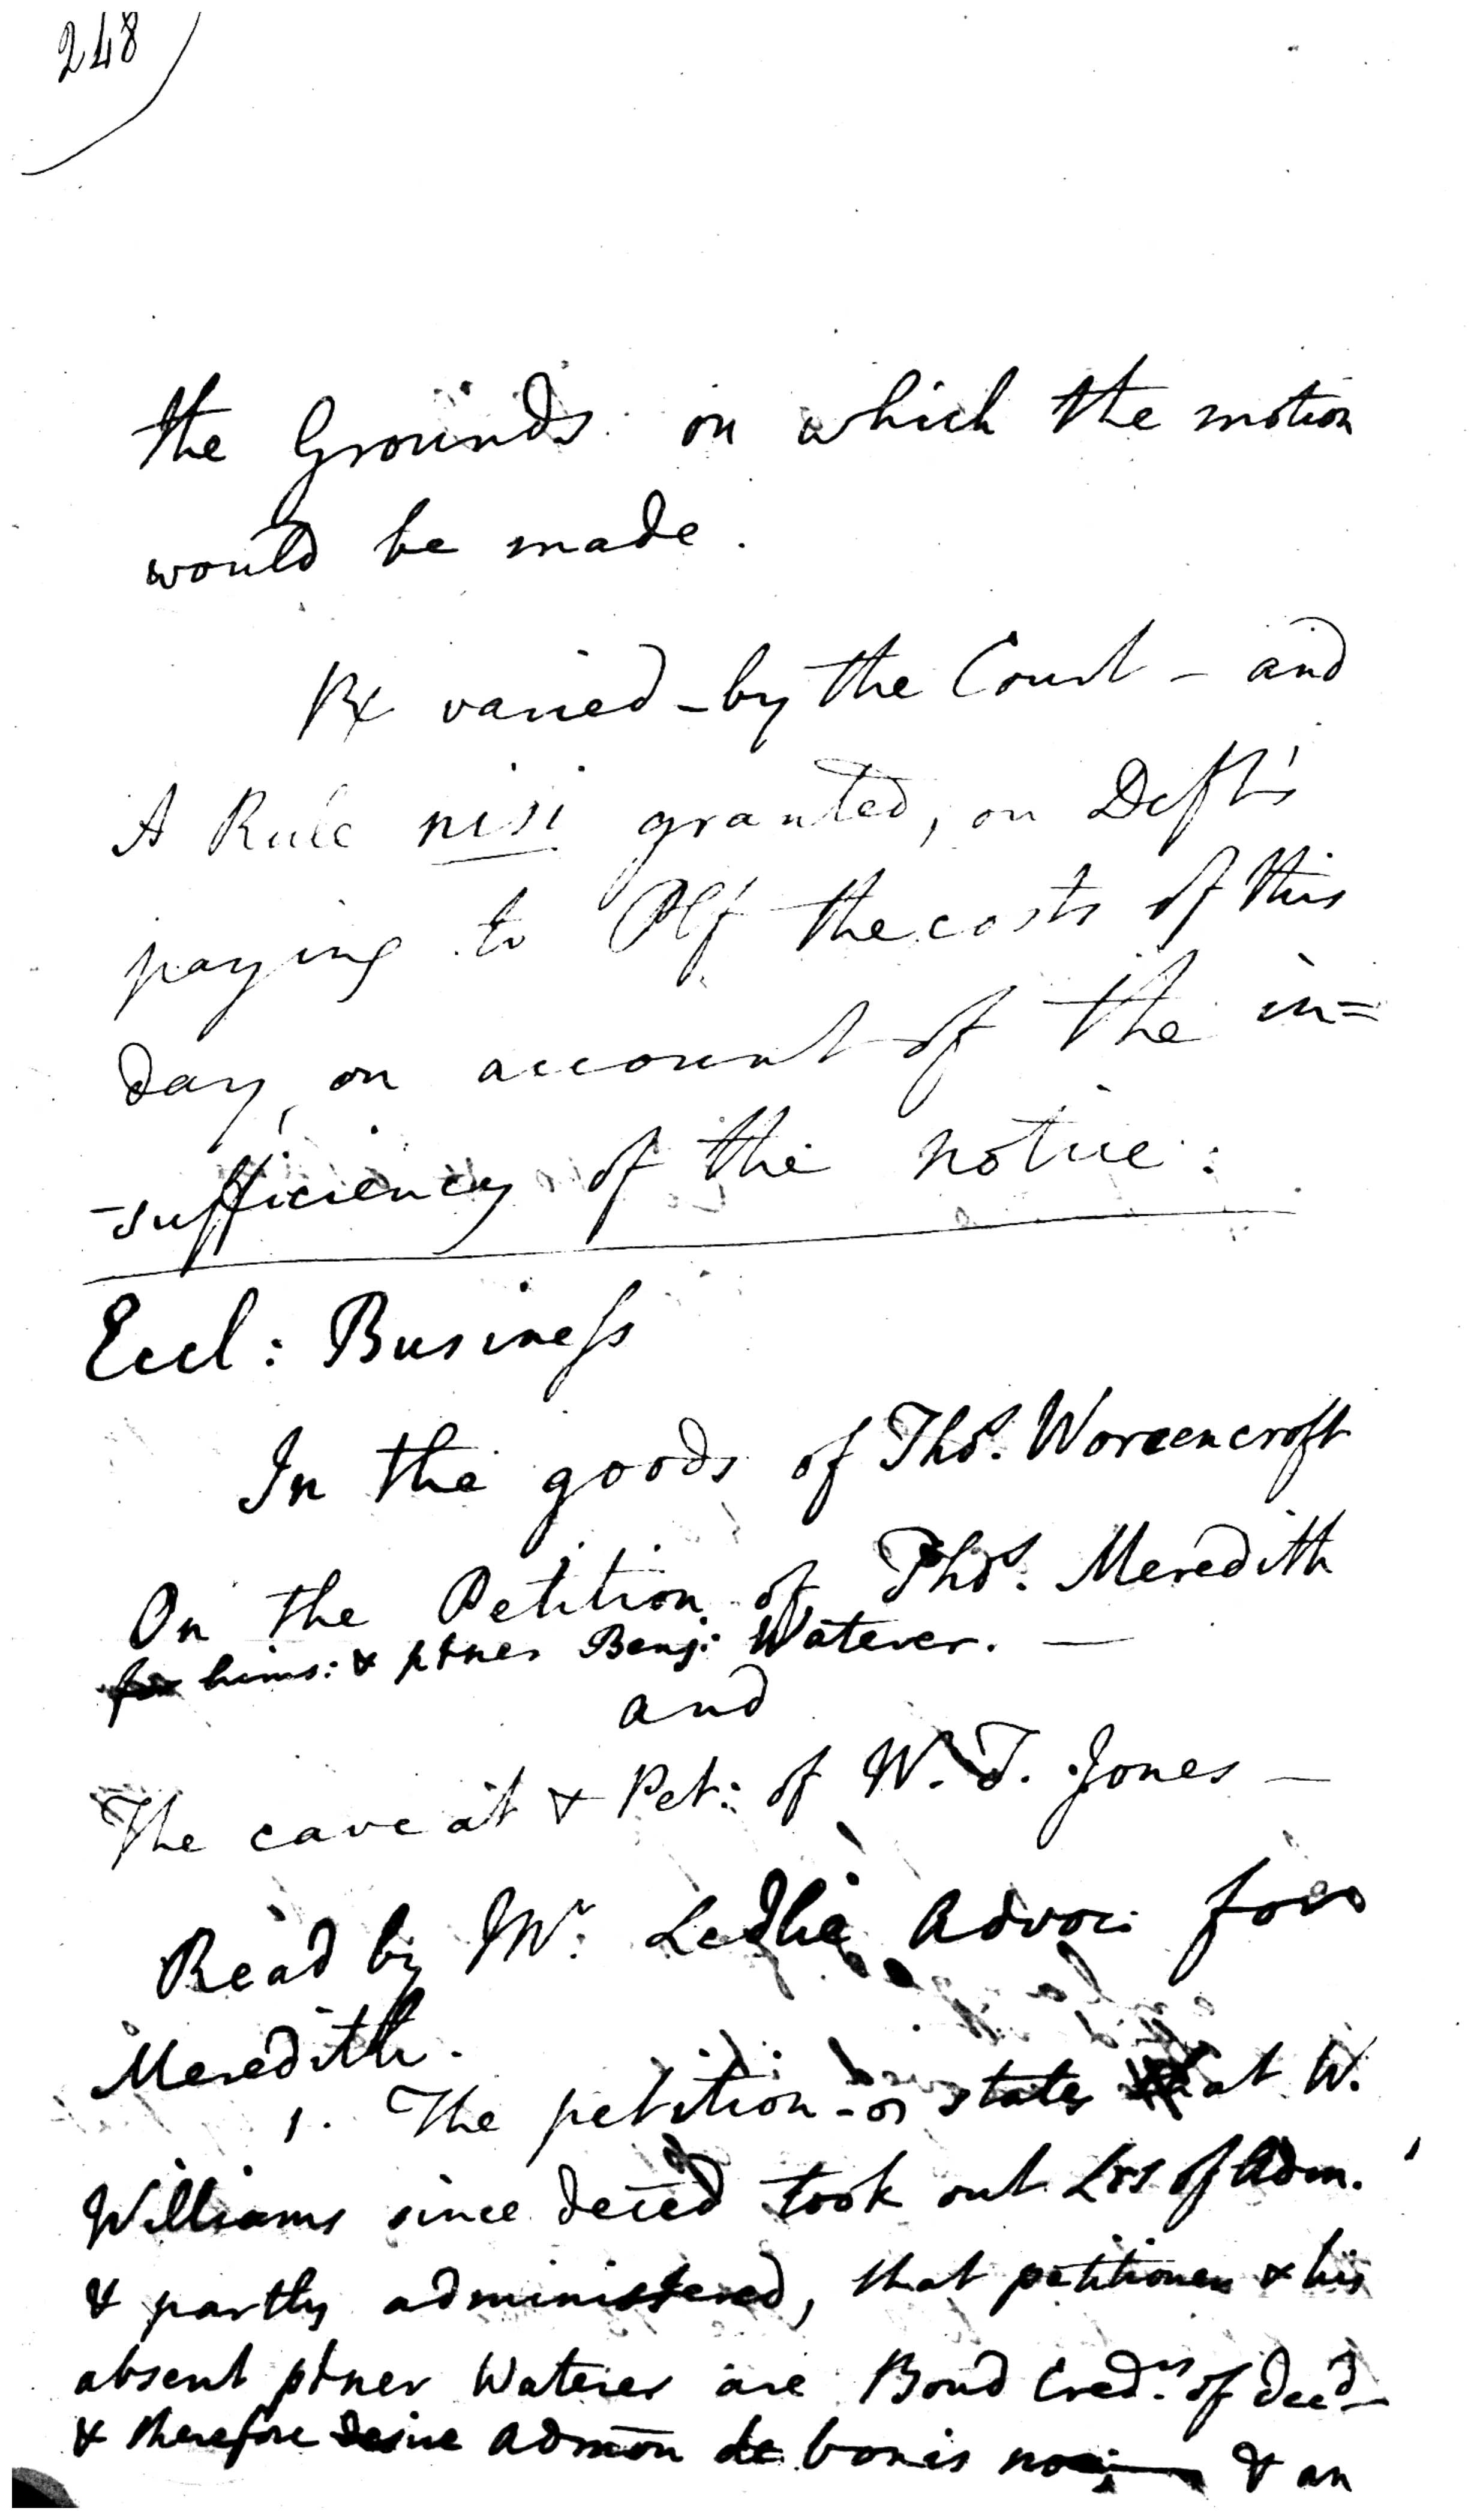 248
the Grounds on which the motion
would be made.
Rx varied - by the Court - and
A Rule nisi granted, on Deft's
paying to Plf the costs of this
day, on account of the in=
-sufficiency of the notice.
Eccl: Business
In the goods of Thos. Worrencroft
On the Petition of Thos. Meredith
for hims: & ptner Benj: Waterer. —
and
The caveat & Pet: of W. T. Jones —
Read by Mr. Ledlie Advoc: for
Meredith.
1. The petition - states that W.
Williams since deced took out Lrs of Adm.
& partly administered, that petitioner & his
absent ptner Waterer are Bond Credrs. of deced
& therefore desire Admōn de bonis non & an